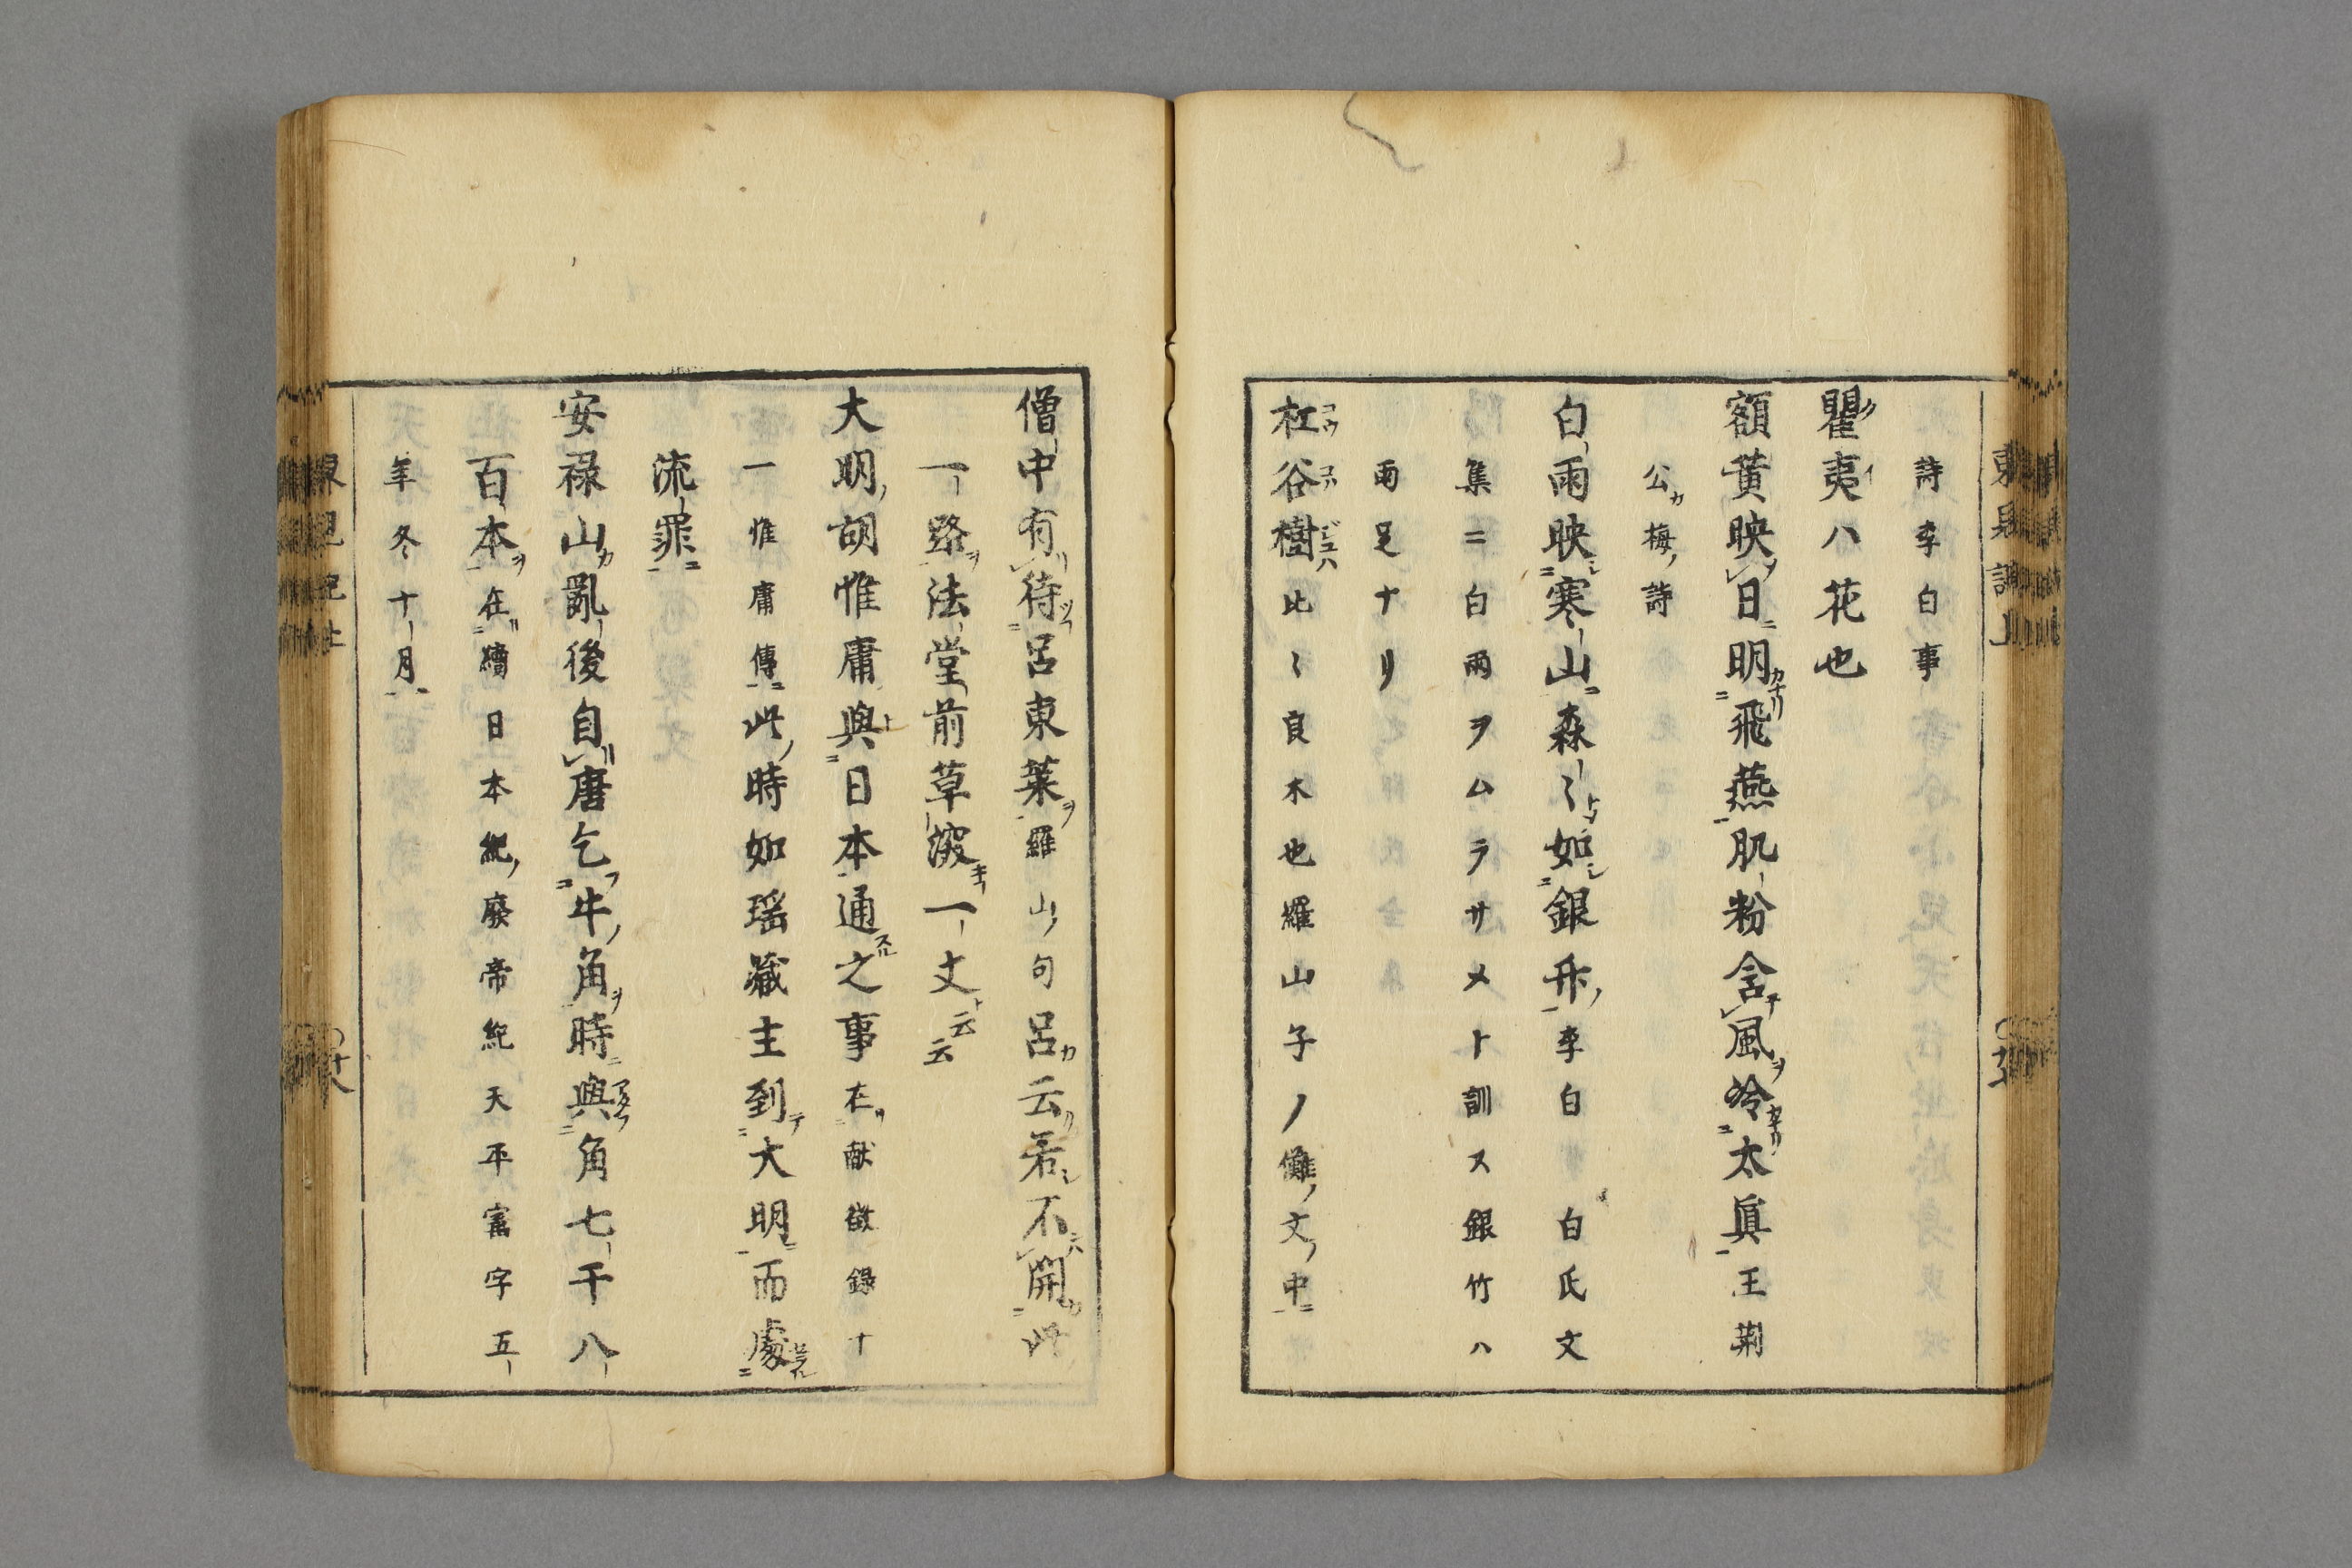 詩李白事
瞿夷ハ花也
額黄映日明飛燕肌粉含風冷太眞王荆
公梅詩
白雨映寒山森〻如銀竹李白白氏文
集ニ白雨ヲムラサメト訓ス銀竹ハ
雨足ナリ
杠谷樹比〻良木也羅山子ノ儺文中
僧中有待呂東萊羅山句呂云若不開此
一路法堂前草深一丈云云
大明胡惟庸與日本通之事在献徴錄十
一惟庸傳此時如瑶藏主到大明而處
流罪
安祿山亂後自唐乞牛角時與角七千八
百本在續日本紀廢帝紀天平寳字五
年冬十月